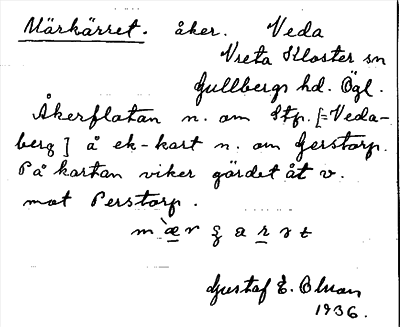 Märkärret. åker. Veda
Vreta Kloster sn
Gullbergs hd. Ögl.
Åkerflatan n. om Stp. [=Veda-
berg] å ek-kart n. om Gerstorp.
På kartan viker gärdet åt v.
mot Perstorp.
Gustaf E. Olson
1936.